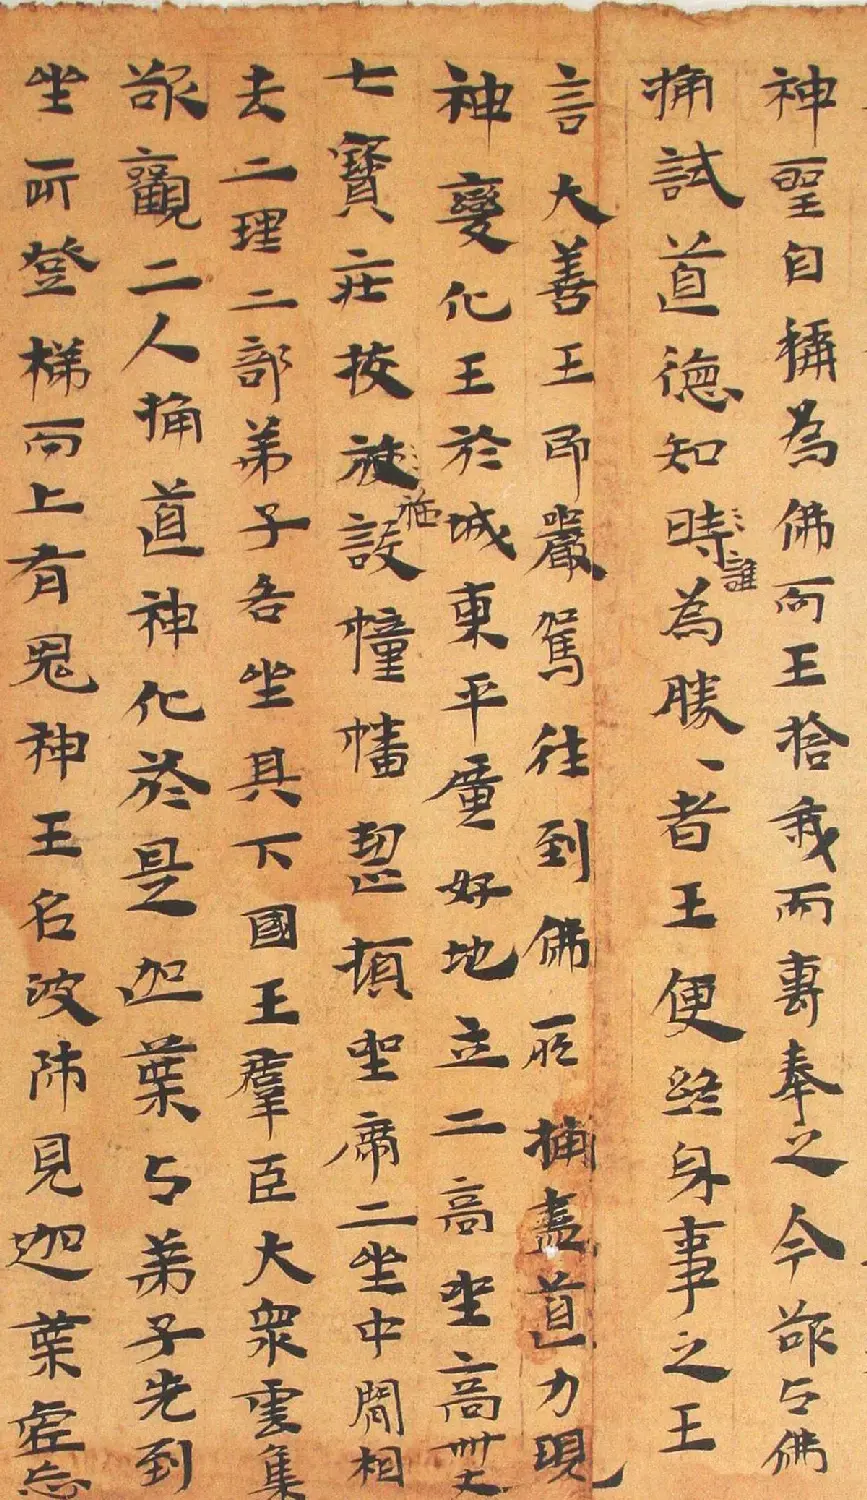 神聖自稱為佛向王捨我而專奉之今欲与佛
捔試道德知時誰為勝、者王便終身事之王
言大善王即嚴駕往到佛所捔盡道力現
神變化王於城東平廣好地立二高坐高卌丈
七寶庄挍被施設幢幡整頓坐席二坐中間相
去二理二部弟子各坐其下國王羣臣大衆雲集
欲觀二人捔道神化於是迦葉与弟子先到
坐所登梯而上有鬼神王名波師見迦葉虛忘